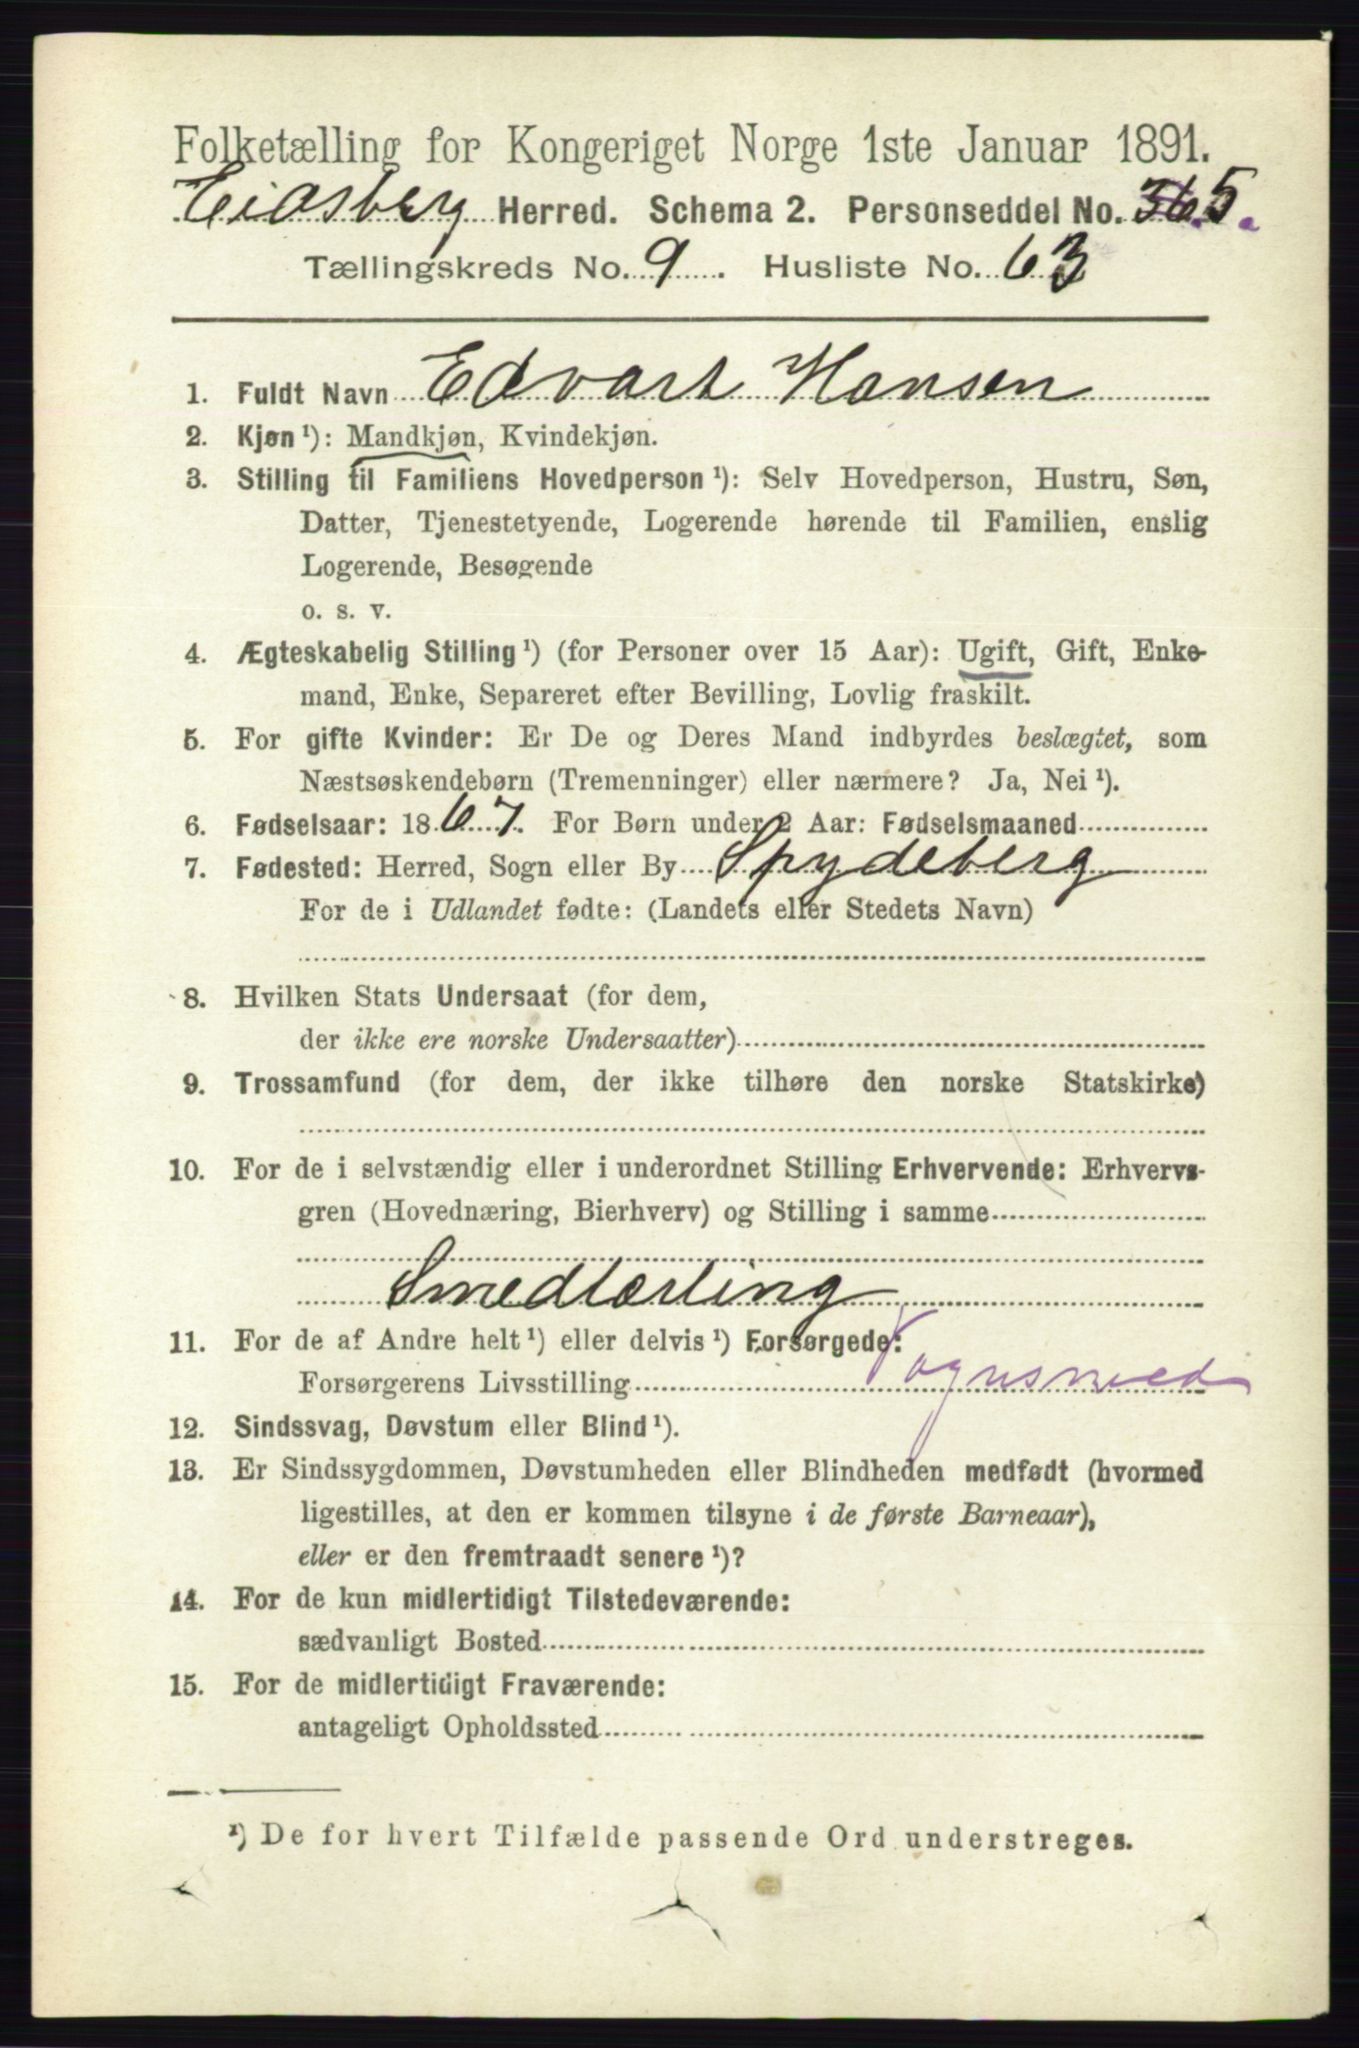 Folketælling for Kongeriget Norge 1ste Januar 1891.
Eidsberg Herred. Schema 2. Personseddel No. 365.
Tællingskreds No. 9. Husliste No. 63
1. Fuldt Navn Edvart Hansen
2. Kjøn ¹): Mandkjøn, Kvindekjøn.
3. Stilling til Familiens Hovedperson ¹): Selv Hovedperson, Hustru, Søn,
Datter, Tjenestetyende, Logerende hørende til Familien, enslig
Logerende, Besøgende
o. s. v.
4. Ægteskabelig Stilling ¹) (for Personer over 15 Aar): Ugift, Gift, Enke-
mand, Enke, Separeret efter Bevilling, Lovlig fraskilt.
5. For gifte Kvinder: Er De og Deres Mand indbyrdes beslægtet, som
Næstsøskendebørn (Tremenninger) eller nærmere? Ja, Nei ¹).
6. Fødselsaar: 1867. For Børn under 2 Aar: Fødselsmaaned
7. Fødested: Herred, Sogn eller By Spydeberg
For de i Udlandet fødte: (Landets eller Stedets Navn)
8. Hvilken Stats Undersaat (for dem,
der ikke ere norske Undersaatter)
9. Trossamfund (for dem, der ikke tilhøre den norske Statskirke)
10. For de i selvstændig eller i underordnet Stilling Erhvervende: Erhvervs-
gren (Hovednæring, Bierhverv) og Stilling i samme
Smedlærling
11. For de af Andre helt ¹) eller delvis ¹) Forsørgede:
Forsørgerens Livsstilling Vognsmed
12. Sindssvag, Døvstum eller Blind ¹).
13. Er Sindssygdommen, Døvstumheden eller Blindheden medfødt (hvormed
ligestilles, at den er kommen tilsyne i de første Barneaar),
eller er den fremtraadt senere ¹)?
14. For de kun midlertidigt Tilstedeværende:
sædvanligt Bosted
15. For de midlertidigt Fraværende:
antageligt Opholdssted
¹) De for hvert Tilfælde passende Ord understreges.